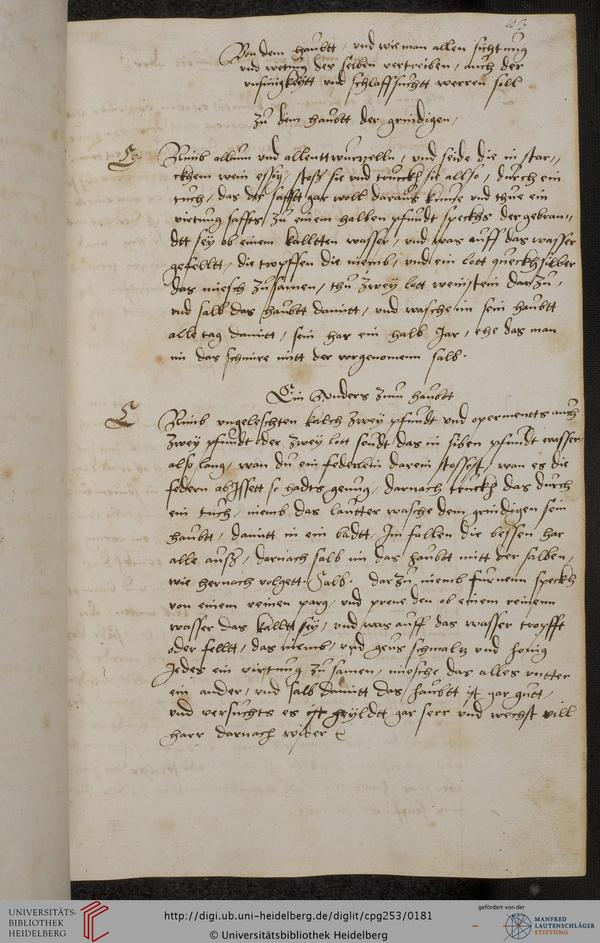 Von dem haubtt / vnd wie man allen
vnd des selben vertreiben / auch der
vnsinigkeytt vnd schlaffsuchtt werren soll
Zu dem haubtt der grindigen /
Nimb allaun vnd allenttwurzelln / vnd seide die in star//
ckhem wein essig / stoß sie vnd truckh sie allso / durch ein
tuch / das der safftt gar woll daraus kume vnd thue ein
virtung saffts / zu einem halben pfundt speckhs der gebran//
dtt sey ob einem kalltten wasser / vnd was auff das wasser
gefelltt / die tropffen die niemb / vnd ein lott queckhsilber
das misch zusamen / thu zwey lott weinstein darzu /
vnd salb das haubtt damitt / vnd wasche im sein haubtt
alle tag damitt / sein har ein halb Jar / ehe das man
im das schmire mitt der vorgenomenn salb .
Ein Anders zum haubtt
Nimb vngeleschten kalch zwey pfundt vnd opermentts auch
zwey pfundt oder zwey lott seudt das in siben pfundt wasser
also lang / wan du ein federlein darein stossest / wan es die
federn so hadts genug / darnach truckh das durch
ein tuch / niemb das lautter wasche dem grindigen sein
haubt / damitt in ein badtt / Im fallen die bessen har
alle auß / darnach salb im das haubtt mitt der salben /
wie hernach volgett . Salb . darzu niemb speckh
von einem reinen parg / vnd prene den ob einem reinenn
wasser das kalltt sey / vnd was auff das wasser tropfft
oder felltt / das niemb / vnd gens schmaltz vnd honig
Jedes ein virtung zusamen / mische das alles vntter
ein ander / vnd salb damitt das haubtt ist gar gutt /
vnd versuchts es ist gar serr vnd wechst vill
harr darnach wider
UNIVERSITÄTS-
BIBLIOTHEK
HEIDELBERG
http://digi.ub.uni-heidelberg.de/diglit/cpg253/0181
© Universitätsbibliothek Heidelberg
gefördert von der
MANFRED
LAUTENSCHLÄGER
STIFTUNG